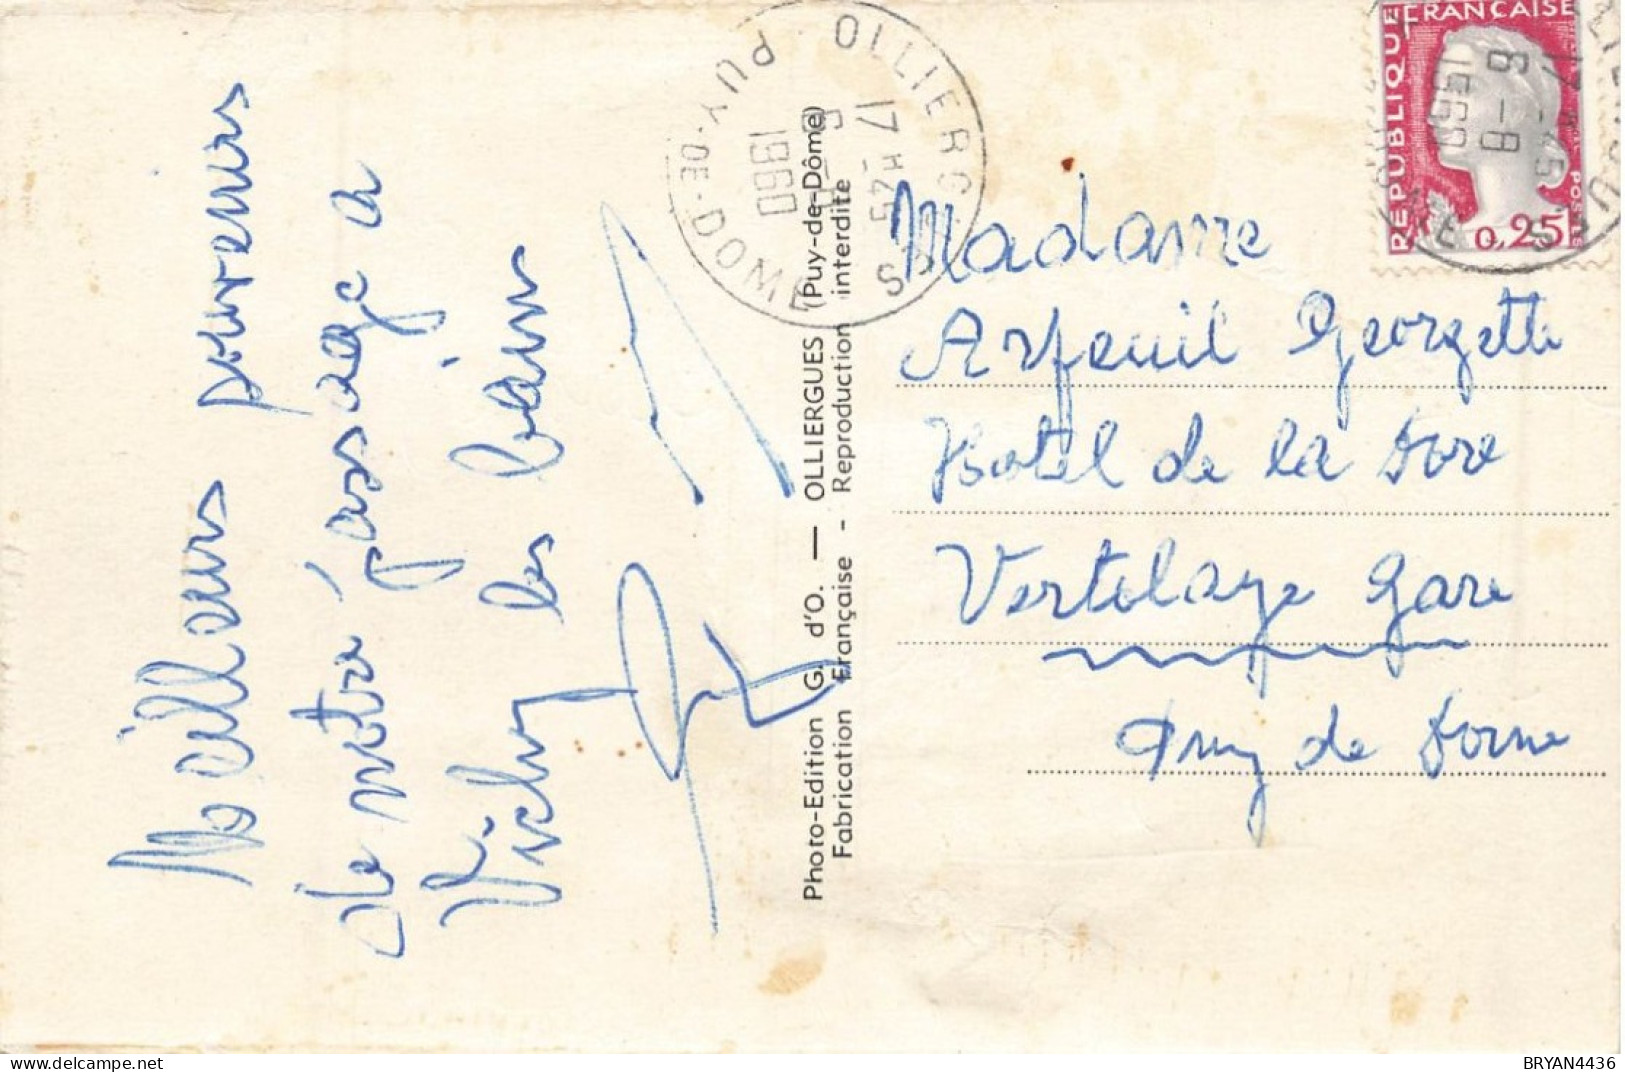 Meilleurs souvenirs
de notre passage a
Vichy les bains
Photo-Edition G. d'O. — OLLIERGUES (Puy-de-Dôme)
Fabrication Française - Reproduction interdite
OLLIERGUES
PUY-DE-DOME
17H45
6-8
1960
REPUBLIQUE FRANÇAISE
POSTES
0,25
17H45
6-8
1960
Madame
Arfeuil Georgette
Hotel de la Dore
Vertolaye Gare
Puy de Dome
BRYAN4436